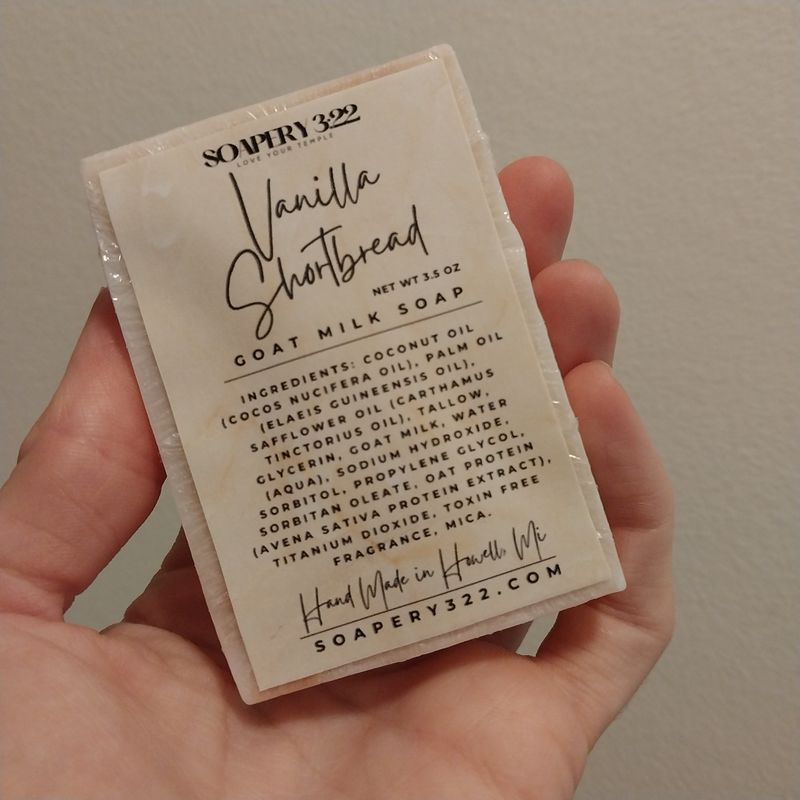 SOAPERY 3:22
LOVE YOUR TEMPLE
Vanilla
Shortbread
NET WT 3.5 OZ
GOAT MILK SOAP
INGREDIENTS: COCONUT OIL
(COCOS NUCIFERA OIL), PALM OIL
(ELAEIS GUINEENSIS OIL),
SAFFLOWER OIL (CARTHAMUS
TINCTORIUS OIL), TALLOW,
GLYCERIN, GOAT MILK, WATER
(AQUA), SODIUM HYDROXIDE,
SORBITOL, PROPYLENE GLYCOL,
SORBITAN OLEATE, OAT PROTEIN
(AVENA SATIVA PROTEIN EXTRACT),
TITANIUM DIOXIDE, TOXIN FREE
FRAGRANCE, MICA.
Hand Made in Howell, Mi
SOAPERY322.COM